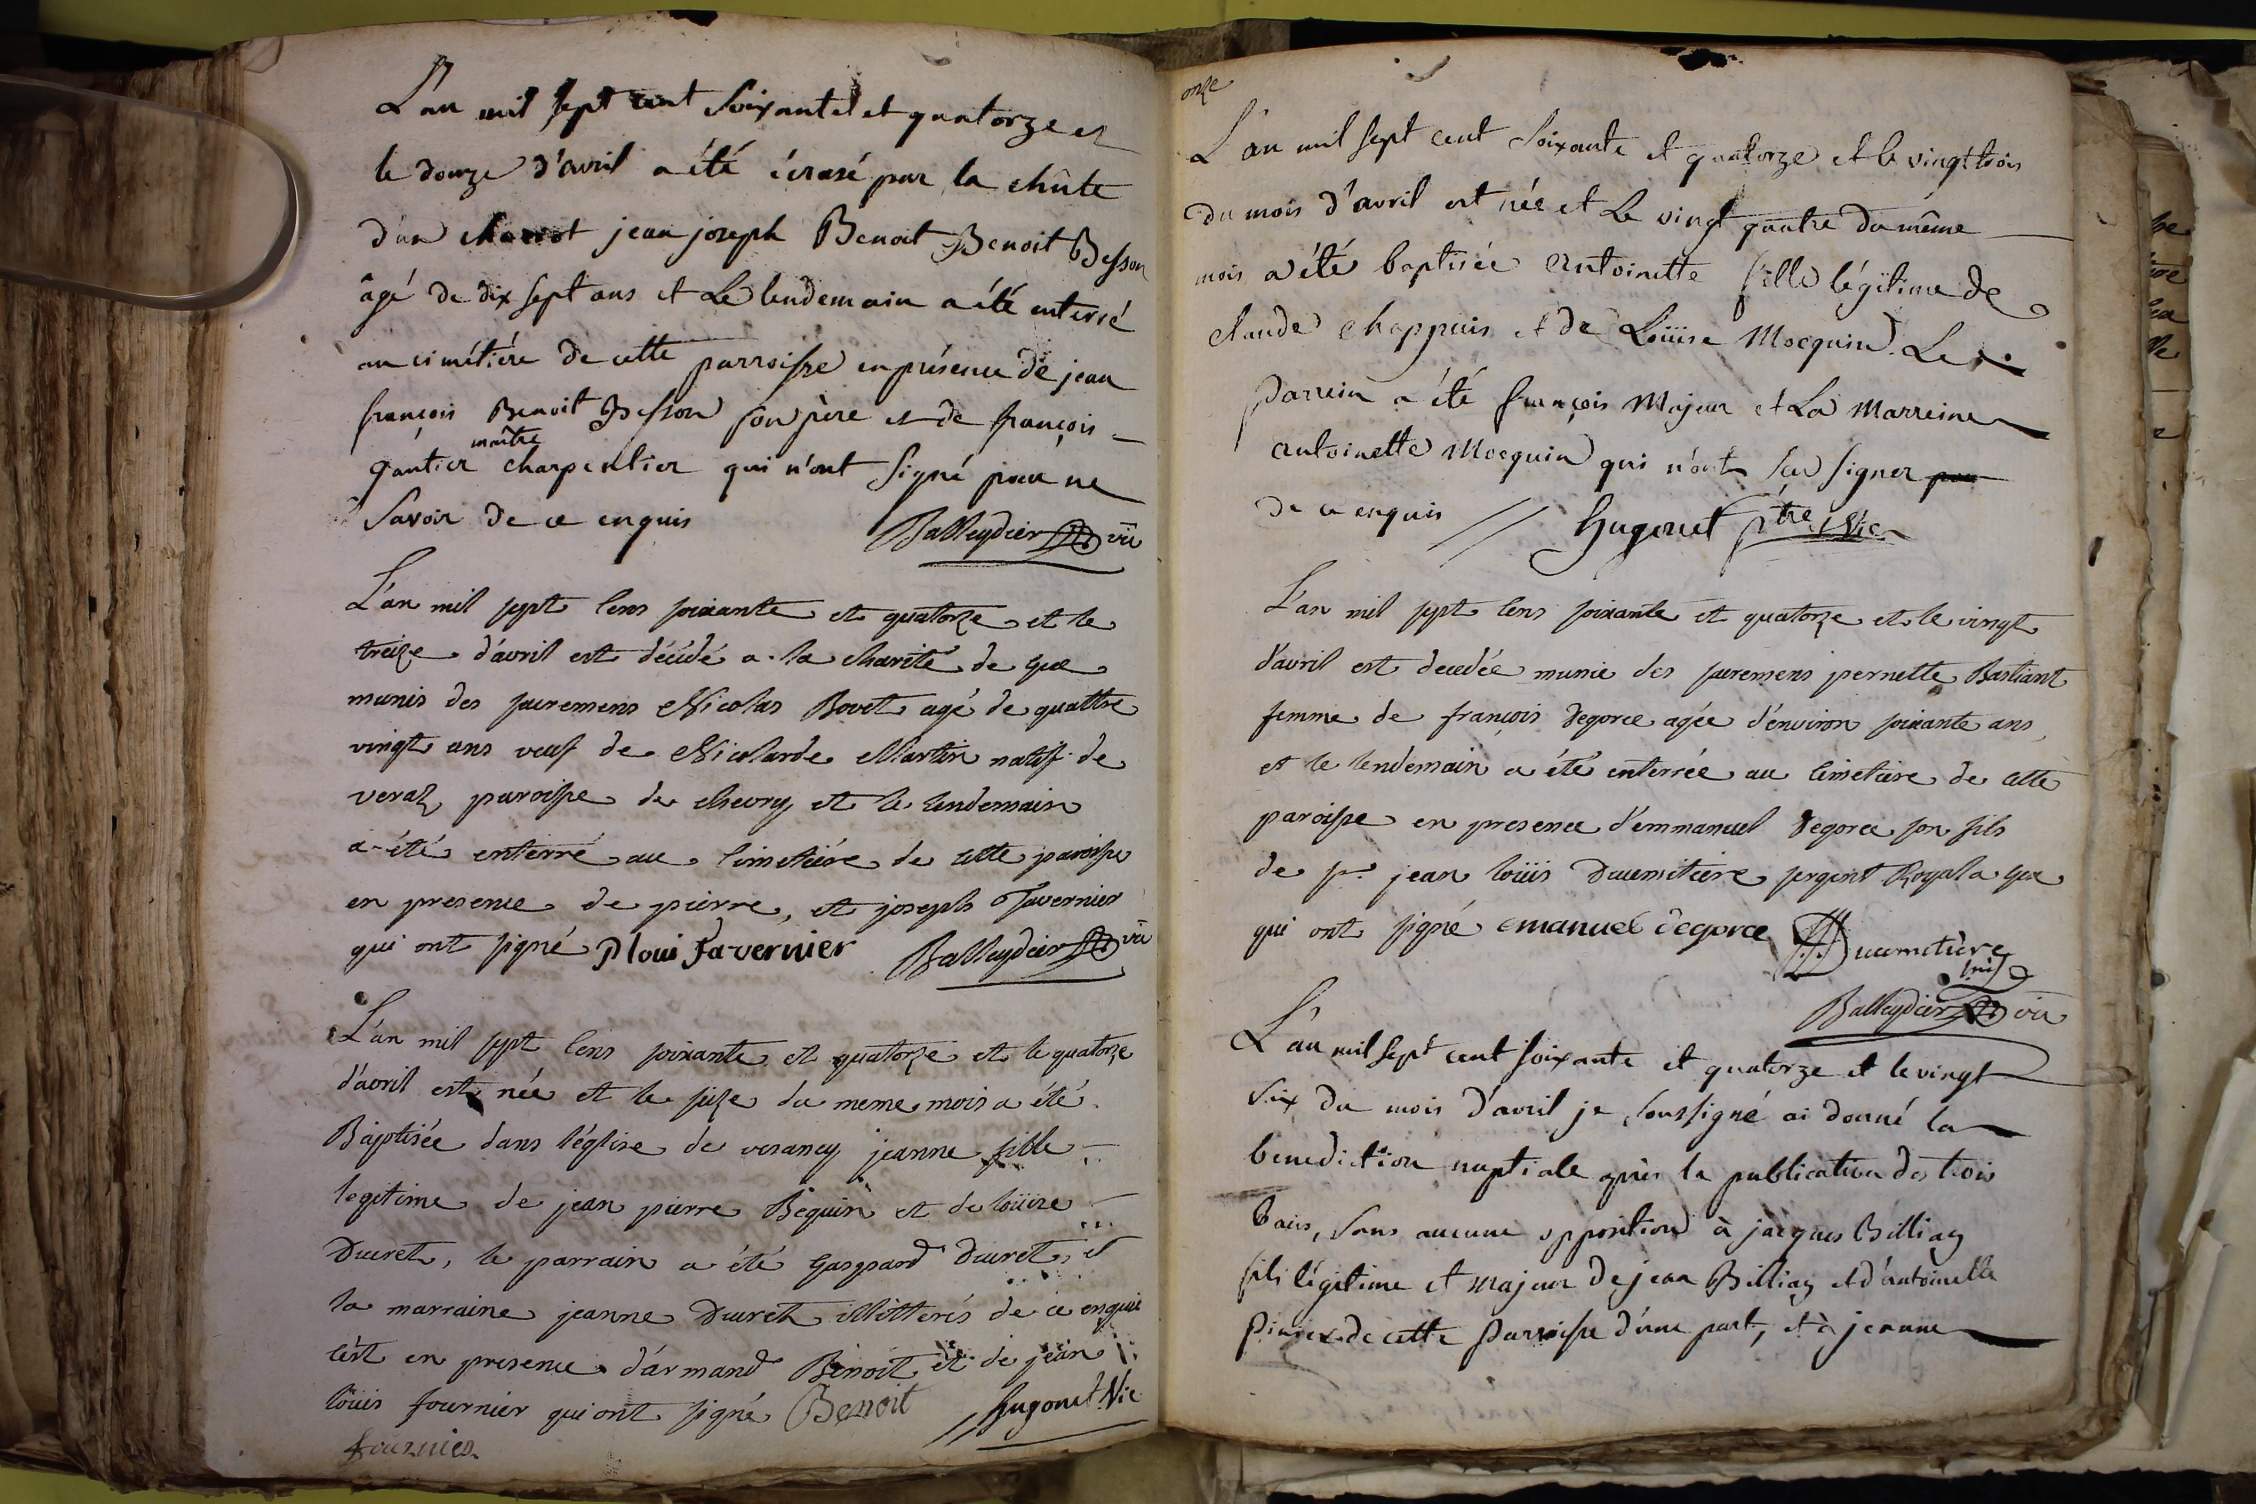 L'an mil sept cent soixante et quatorze et
le douze d'avril a été écrasé par la chûte
d'un charrot jean joseph Benoit Benoit Besson
âgé de dix sept ans et Le lendemain a été enterré
au cimétiére de cette parroisse en présence de jean
françois Benoit Besson son père et de françois
maître
gautier charpentier qui n'ont signé pour ne
savoir de ce enquis Balleydier vic
L'an mil sept cens soixante et quatorze et le
treize d'avril est décédé a la charité de gex
munis des sacremens Nicolas Bovet agé de quattre
vingt ans veuf de Nicolarde Martin natif de
veraz paroisse de chevry et le lendemain
a été enterré au cimetiére de cette paroisse
en presence de pierre, et joseph Tavernier
qui ont signé P loui Tavernier Balleydier vic
L'an mil sept cens soixante et quatorze et le quatorze
d'avril est née et le seize du meme mois a été
Baptisée dans l'église de vesancy jeanne fille
legitime de jean pierre Béquin et de loüise
Ducret, le parrain a été gaspard Ducret, et
la marraine jeanne Ducret illitterés de ce enquis
c'est en presence d'armand Benoit et de jean
loüis fournier qui ont signé Benoit Hugonet Vic
fournier
onze
L'an mil sept cent soixante et quatorze et le vingt trois
du mois d'avril est née et Le vingt quatre du même
mois a été baptisée antoinette fille légitime de
claude chappuis et de Loüise Mocquin. Le
Parrein a été françois Majeur et La Marreine
antoinette Mocquin qui n'ont sçu signer
de ce enquis Hugonet ptre Vic
L'an mil sept cens soixante et quatorze et le vingt
d'avril est decedée munie des sacremens pernette Bastiant
femme de françois degorce agée d'environ soixante ans
et le lendemain a été enterrée au cimetiere de cette
paroisse en presence d'emmanuel degorce son fils
de sr. jean loüis Ducimetiere sergent Royal a gex
qui ont signé emanuel degorce Ducimetière
Balleydier vic
L'an mil sept cent soixante et quatorze et le vingt
six du mois d'avril je soussigné ai donné la
benediction nuptiale après la publication des trois
bans, sans aucune opposition à jacques Billiaz
fils légitime et majeur de jean Billiaz et d'antoinette
de cette Parroisse d'une part, et à jeanne